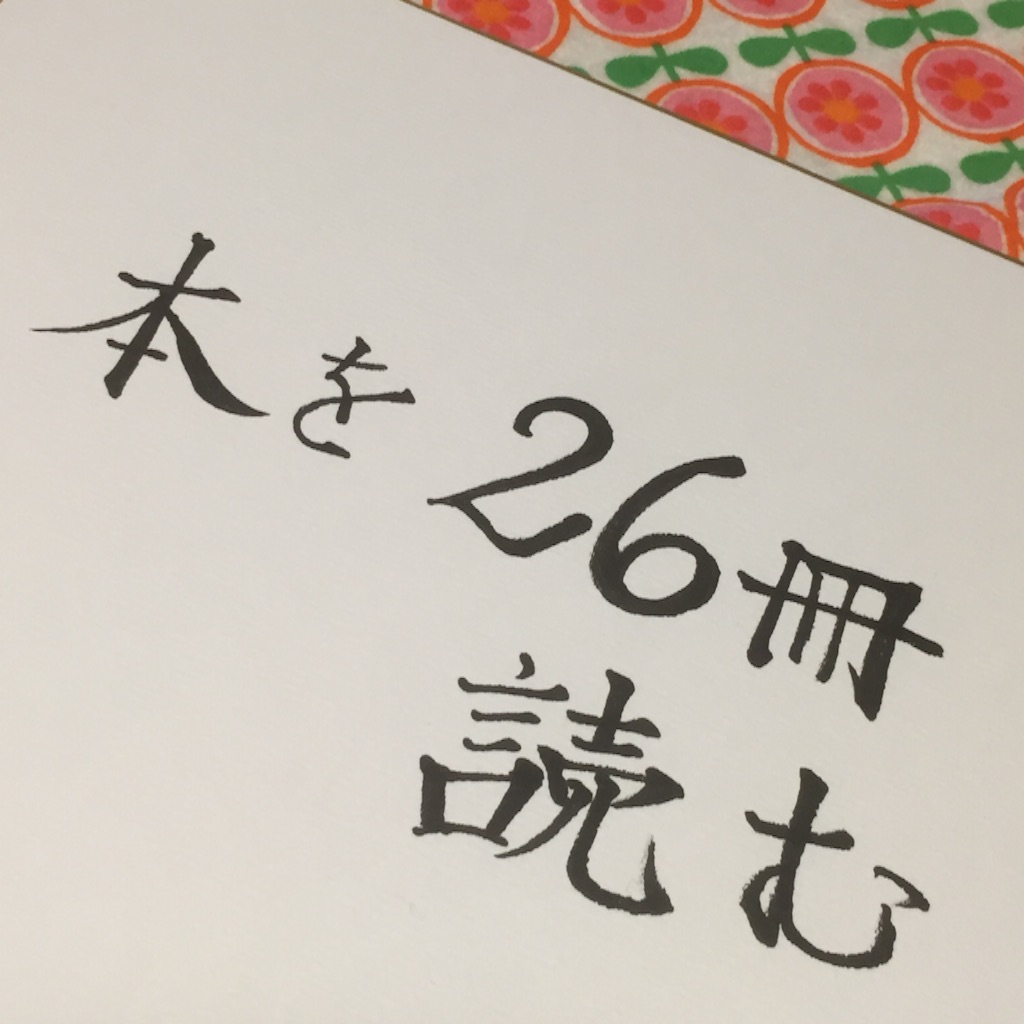 本を26冊
読む